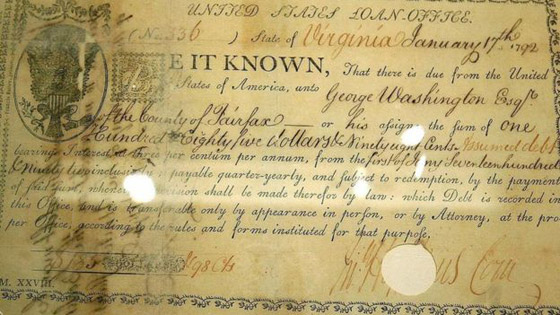 UNITED STATES LOAN-OFFICE.
(No. 336) State of Virginia January 17th 1792
BE IT KNOWN, That there is due from the United
States of America, unto George Washington Esqr
of the County of Fairfax or his assigns, the sum of One
Hundred Eighty five Dollars & Ninety eight Cents Assumed debt
bearing Interest at three per centum per annum, from the first of Seventeen hundred
& Ninety inclusively payable quarter-yearly, and subject to redemption, by the payment
of said sum, whenever provision shall be made therefor by law: which Debt is recorded in
this Office, and is transferable only by appearance in person, or by Attorney, at the pro
per Office, according to the rules and forms instituted for that purpose.
98 Cts
M. XXVIII.